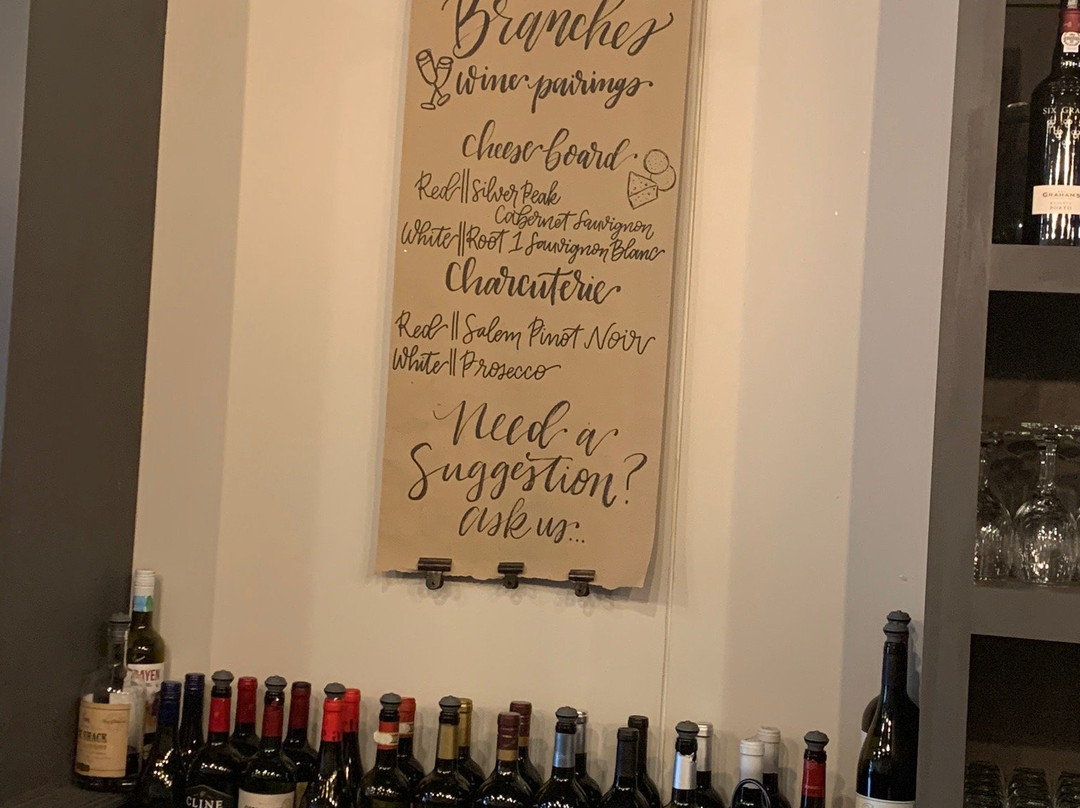 Branches
wine pairings
cheese board
Red || Silver Peak
Cabernet Sauvignon
White || Root 1 Sauvignon Blanc
Charcuterie
Red || Salem Pinot Noir
White || Prosecco
Need a
Suggestion?
ask us...
SIX GRA
GRAHAM'S
PORTO
CLINE